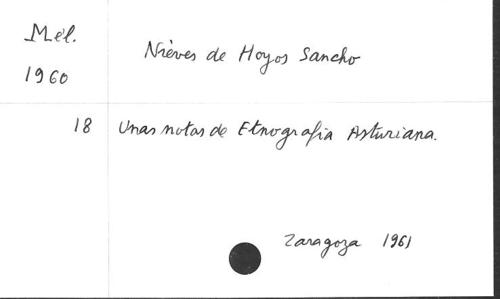 Mél.
1960
Nièves de Hoyos Sancho
18 Unas notas de Etnografia Asturiana.
Zaragoza 1961